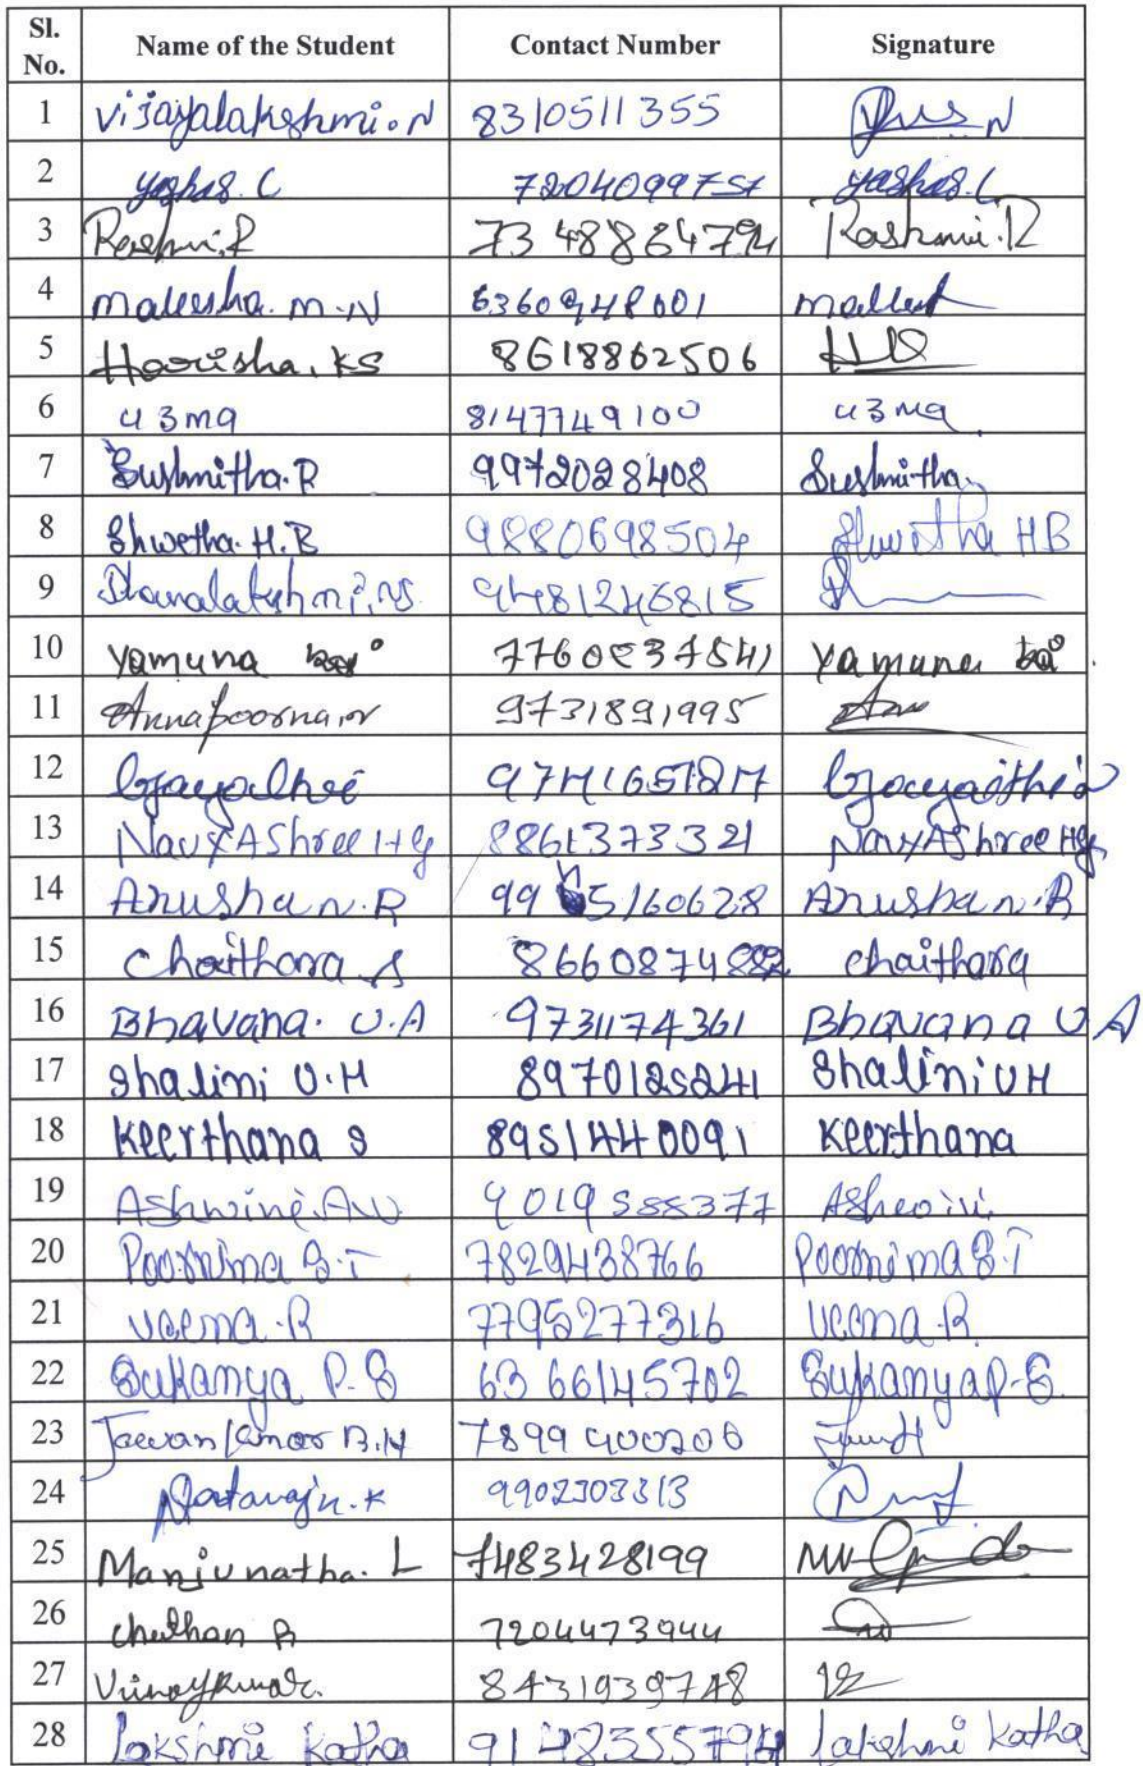 Sl. No. Name of the Student Contact Number Signature
1 Vijayalakshmi.N 8310511355
2 Yashas.C 7204099751 Yashas.C
3 Rashmi.R 7348864794 Rashmi.R
4 Mallesha.M.N 6360948001 Mallesh
5 Harisha.KS 8618862506
6 u3ma 8147749100 u3ma
7 Sushmitha.R 9972028408 Sushmitha
8 Shwetha.H.B 9880698504 Shwetha HB
9 Dhanalakshmi.N.S. 9481246815
10 Yamuna Yamuna
11 Annapoorna.N 9731891995
12 Gayathri 9741651817 Gayaithri
13 NavyAShree HG 8861373321 NavyAShree HG
14 Anushan.R 5160628 Anushan.R
15 Chaithara S 8660874882 Chaithara
16 Bhavana.U.A 9731174361 Bhavana U A
17 Shalini U.H 8970125241 Shalini UH
18 Keerthana S 8951440091 Keerthana
19 Ashwini.A.W 9019588377 Ashwini
20 Poornima S.T 7829438766 Poornima S.T
21 Veena.R 7795277316 Veena.R
22 Sukanya P.S 6366145702 Sukanya P.S.
23 Jawan Kumar B.H 7899400206
24 Nataraju.K 9902303313
25 Manjunatha.L 7483428199
26 Chethan B 7204473944
27 Vinaykumar. 8431939748
28 Lakshmi Katha 9148355794 Lakshmi Katha